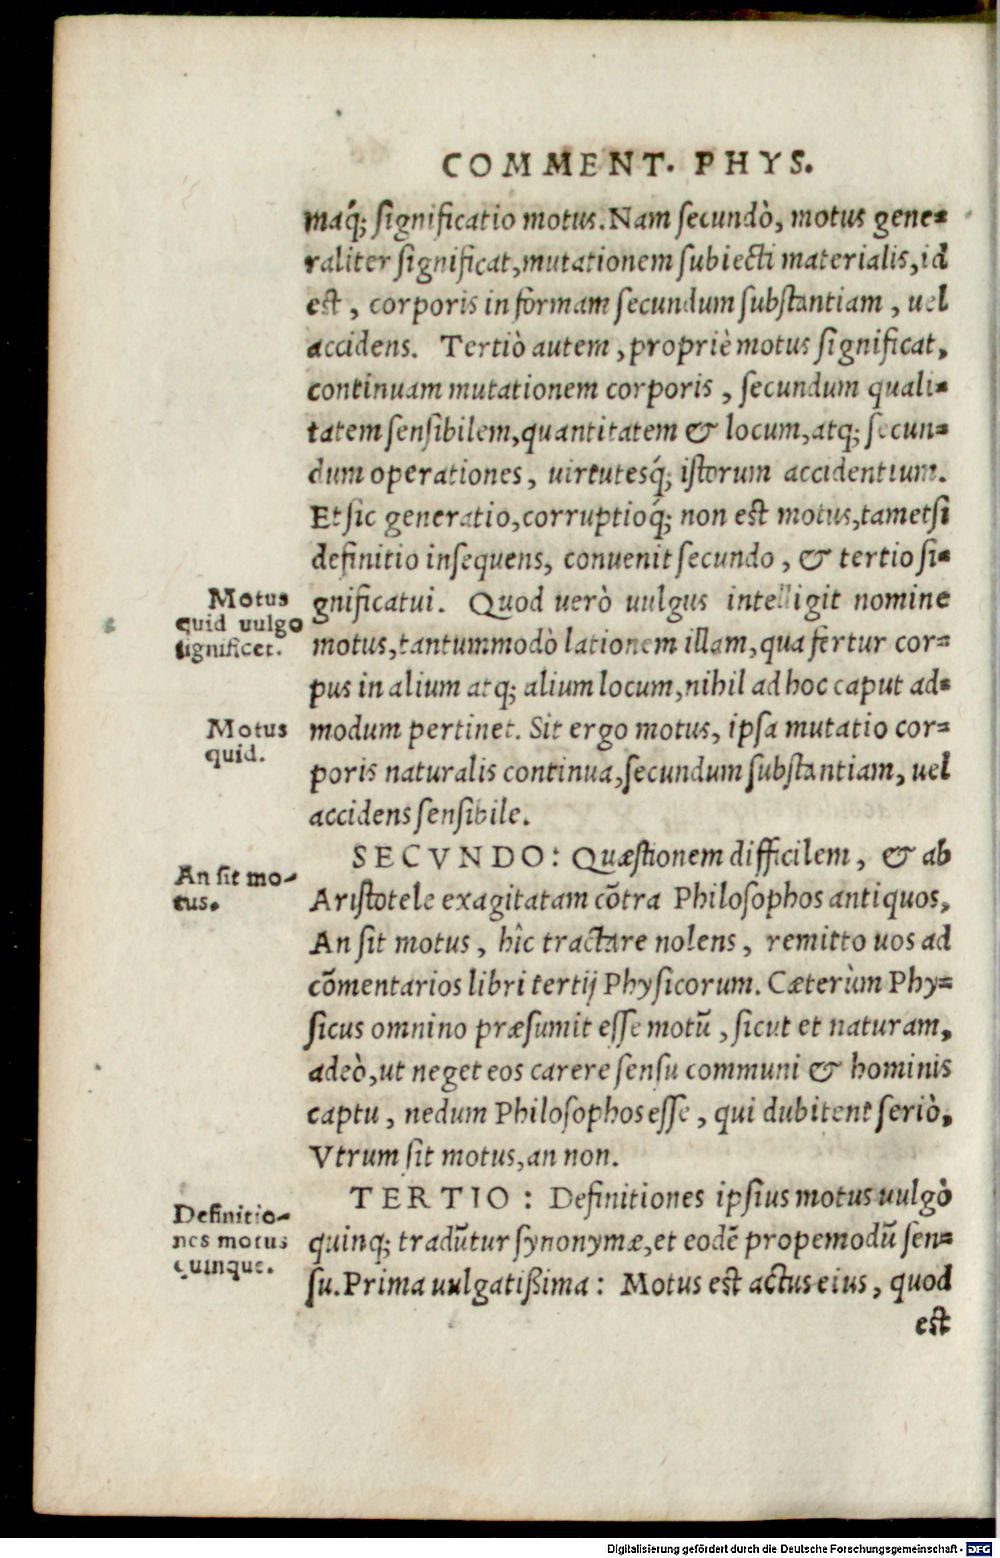 COMMENT. PHYS.
maq́; significatio motus. Nam secundò, motus gene-
raliter significat, mutationem subiecti materialis, id
est, corporis in formam secundum substantiam, uel
accidens. Tertiò autem, propriè motus significat,
continuam mutationem corporis, secundum quali-
tatem sensibilem, quantitatem & locum, atq; secun-
dum operationes, uirtutesq́; istorum accidentium.
Et sic generatio, corruptioq́; non est motus, tametsi
definitio insequens, conuenit secundo, & tertio si-
Motus
quid uulgo
significet.
gnificatui. Quod uerò uulgus intelligit nomine
motus, tantummodò lationem illam, qua fertur cor-
pus in alium atq; alium locum, nihil ad hoc caput ad-
Motus
quid.
modum pertinet. Sit ergo motus, ipsa mutatio cor-
poris naturalis continua, secundum substantiam, uel
accidens sensibile.
SECVNDO: Quæstionem difficilem, & ab
An sit mo-
tus.
Aristotele exagitatam cōtra Philosophos antiquos,
An sit motus, hîc tractare nolens, remitto uos ad
cōmentarios libri tertij Physicorum. Cæterùm Phy-
sicus omnino præsumit esse motū, sicut et naturam,
adeò, ut neget eos carere sensu communi & hominis
captu, nedum Philosophos esse, qui dubitent seriò,
Vtrum sit motus, an non.
TERTIO: Definitiones ipsius motus uulgò
Definitio-
nes motus
quinque.
quinq; tradūtur synonymæ, et eodē propemodū sen-
su. Prima uulgatißima: Motus est actus eius, quod
est
Digitalisierung gefördert durch die Deutsche Forschungsgemeinschaft - DFG